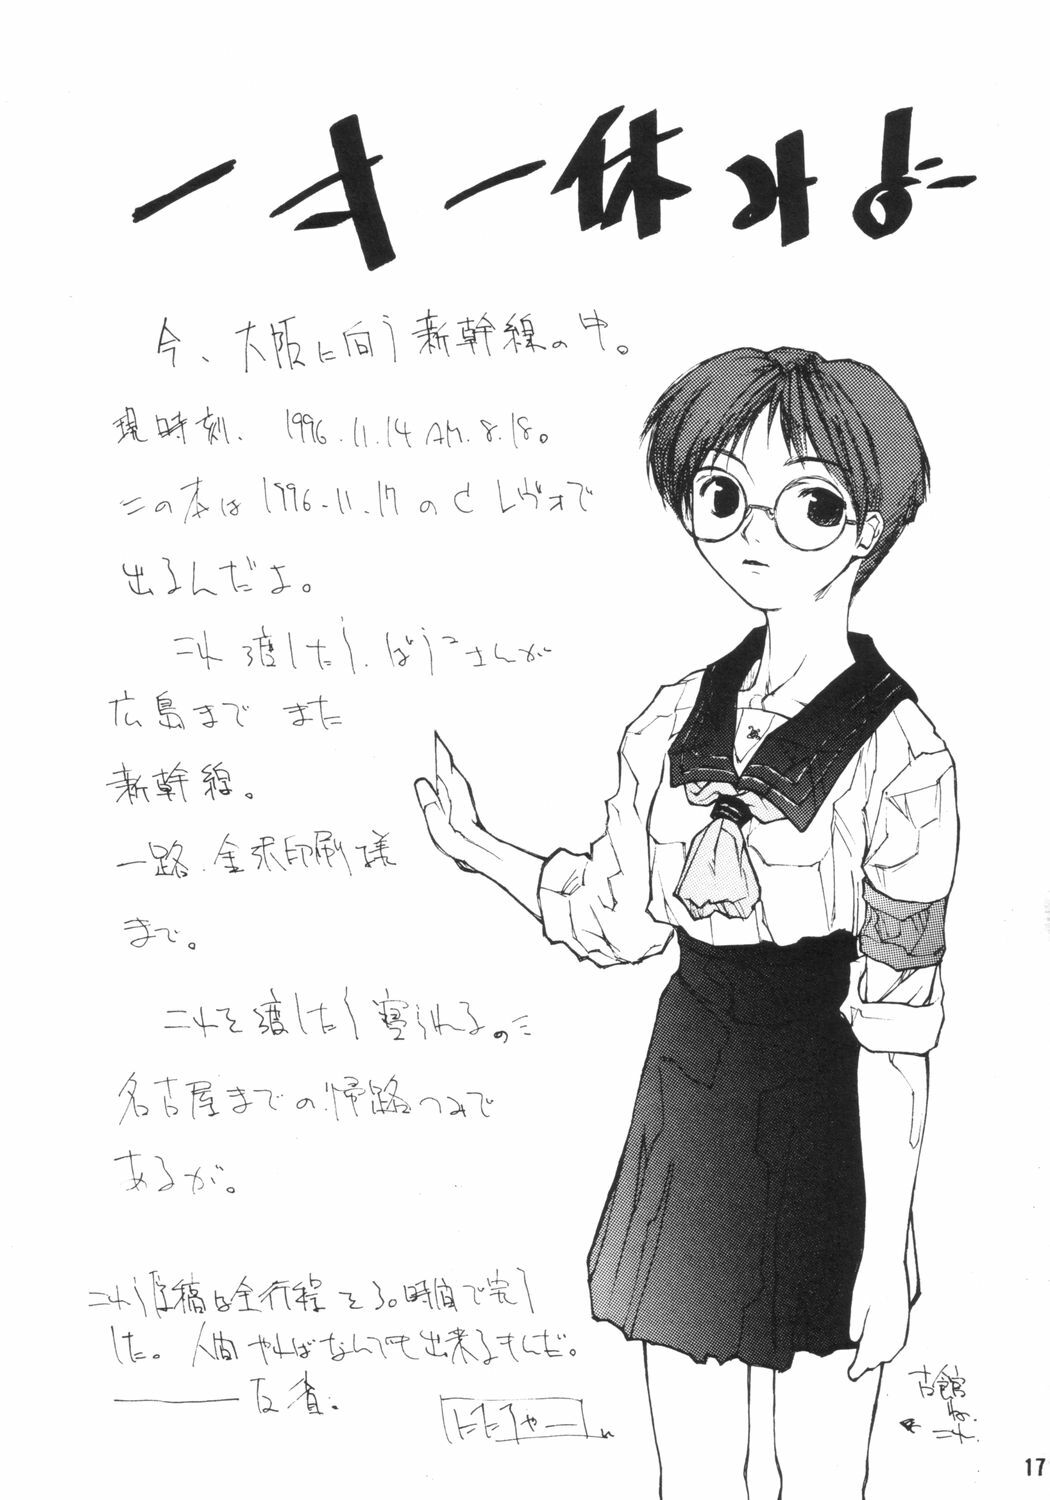 今、大阪に向う新幹線の中。
現時刻、1996.11.14 AM.8.18。
この本は1996.11.17のCレヴォで
出るんだよ。
これ渡したら、ばうこさんが
広島まで また
新幹線。
一路、金沢印刷様
まで。
これを渡したら寝られるのに
名古屋までの帰路つみで
あるが。
これら原稿は全行程を30時間で完了
した。人間やればなんでも出来るもんだ。
反省。
古館
これ
17